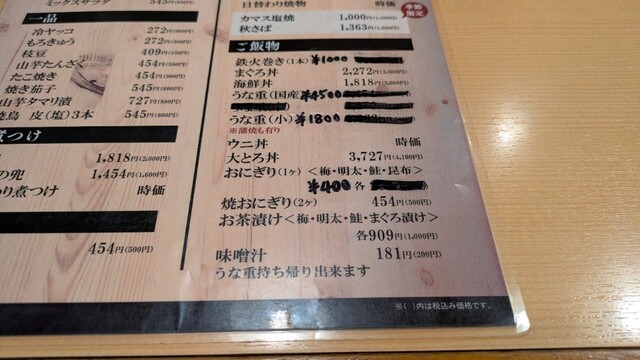 ミックスサラダ 545円(600円)
一品
冷ヤッコ 272円(300円)
もろきゅう 272円(300円)
枝豆 409円(450円)
山芋たんざく 454円(500円)
たこ焼き 454円(500円)
焼き茄子 545円(600円)
山芋タマリ漬 727円(800円)
焼鳥 皮(塩)3本 545円(600円)
煮つけ
1,818円(2,000円)
の兜 1,454円(1,600円)
わり煮つけ 時価
454円(500円)
日替わり焼物 時価
季節限定
カマス塩焼 1,000円(1,100円)
秋さば 1,363円(1,500円)
ご飯物
鉄火巻き(1本) ¥1000
まぐろ丼 2,272円(2,500円)
海鮮丼 1,818円(2,000円)
うな重(国産 ¥4500
うな重(小) ¥1800
※蒲焼も有り
ウニ丼 時価
大とろ丼 3,727円(4,100円)
おにぎり(1ヶ)<梅・明太・鮭・昆布>
¥400 各
焼おにぎり(2ヶ) 454円(500円)
お茶漬け<梅・明太・鮭・まぐろ漬け>
各909円(1,000円)
味噌汁 181円(200円)
うな重持ち帰り出来ます
※( )内は税込み価格です。